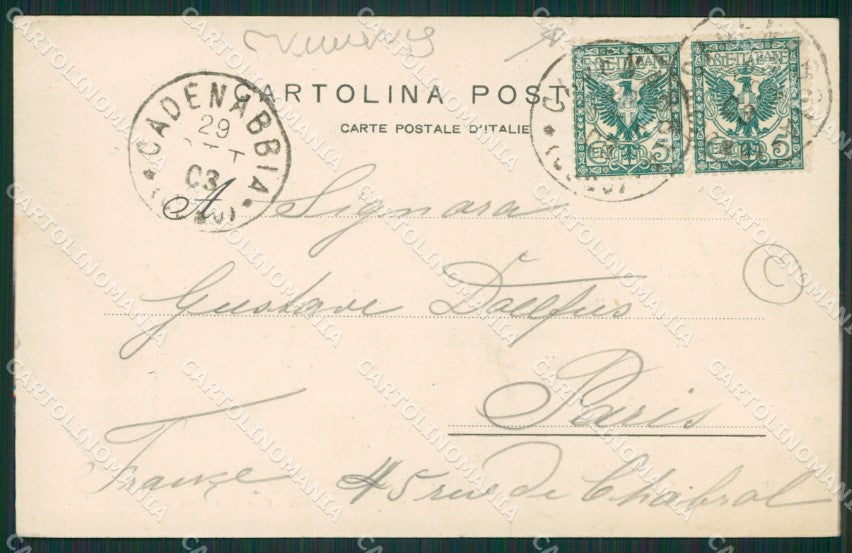 CARTOLINA POST
CARTE POSTALE D'ITALIE
CADENABBIA
29
OTT
03
(COMO)
POSTE ITALIANE
CENT 5
POSTE ITALIANE
CENT 5
A Signora
Gustave Dollfus
Paris
France 45 rue de Chabrol
C
CARTOLINOMANIA